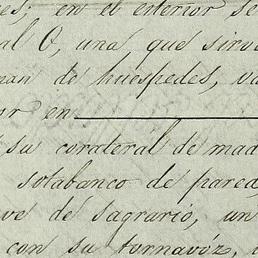 es; en el exterior se
al O, una que sirve
nan de huéspedes, va
or en
su corateral de mad
sotabanco de pared
ve de sagrario, un
con su tornavóz,